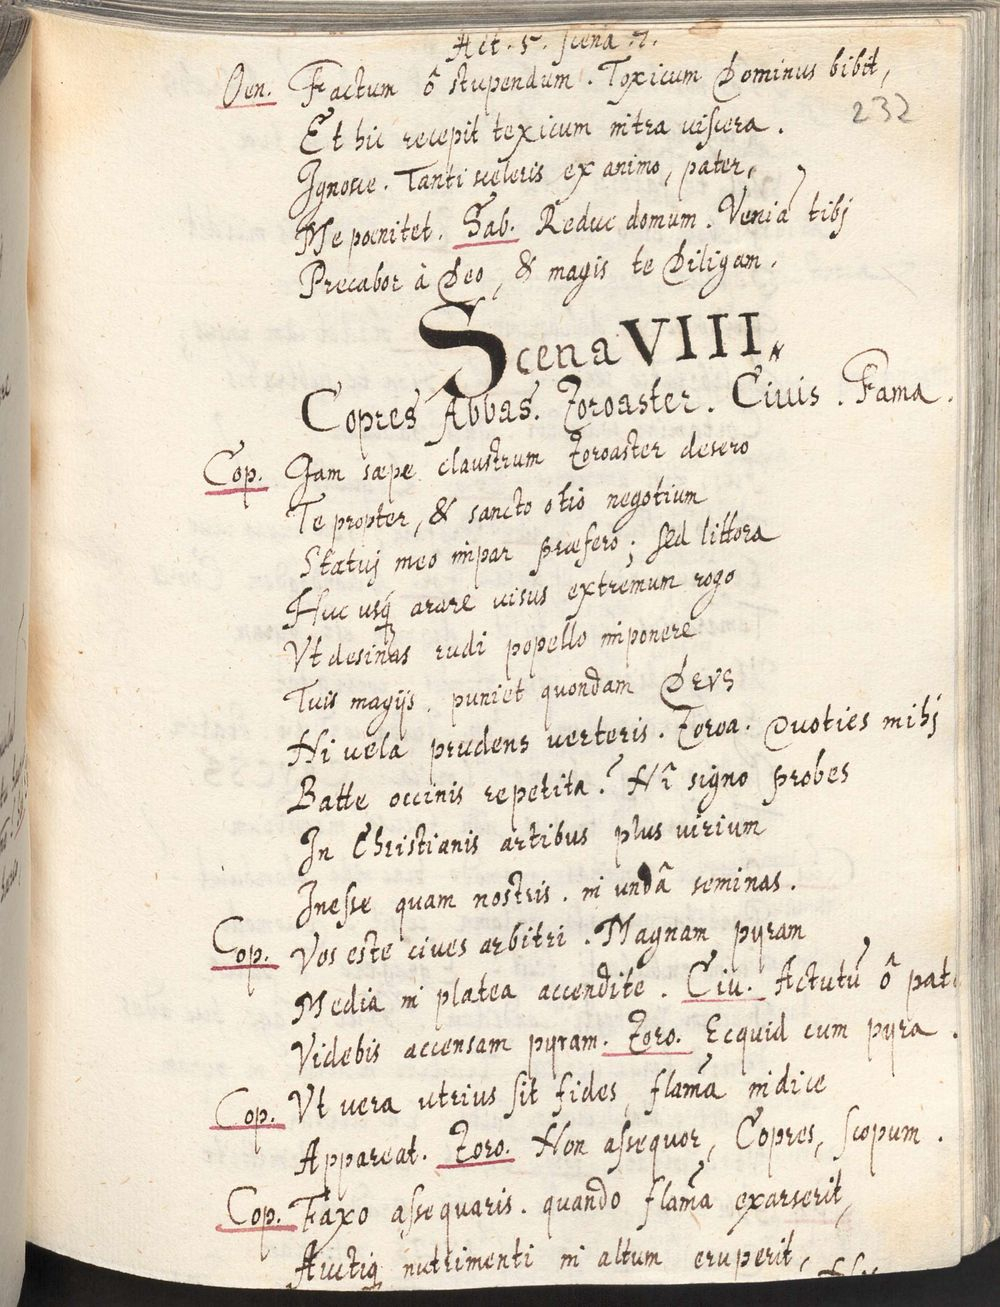 Act. 5. scena 7.
Oen. Factum ô stupendum. Toxicum Dominus bibit,
232
Et hic recepit toxicum intra viscera.
Ignosce. Tanti sceleris ex animo, pater,
Me poenitet. Sab. Reduc domum. Veniã tibj
Precabor à Deo, & magis te diligam.
Scena VIII.
Copres Abbas. Zoroaster. Ciuis. Fama.
Cop. Jam sæpe claustrum Zoroaster desero
Te propter, & sancto otio negotium
Statuj meo impar præfero; sed littora
Huc usq; arare visus extremum rogo
Vt desinas rudi popello imponere
Tuis magijs. puniet quondam DEVS
Ni vela prudens verteris. Zoroa. Quoties mihj
Batte occinis repetita? Nĩ signo probes
In Christianis artibus plus virium
Inesse quam nostris. in undã seminas.
Cop. Vos este ciues arbitri. Magnam pyram
Media in platea accendite. Ciu. Actutũ ô pat
Videbis accensam pyram. Zoro. Ecquid cum pyra.
Cop. Vt vera utrius sit fides, flãma indice
Appareat. Zoro. Non assequor, Copres, scopum.
Cop. Faxo assequaris. quando flãma exarserit,
Auctiq; nutrimenti in altum eruperit,